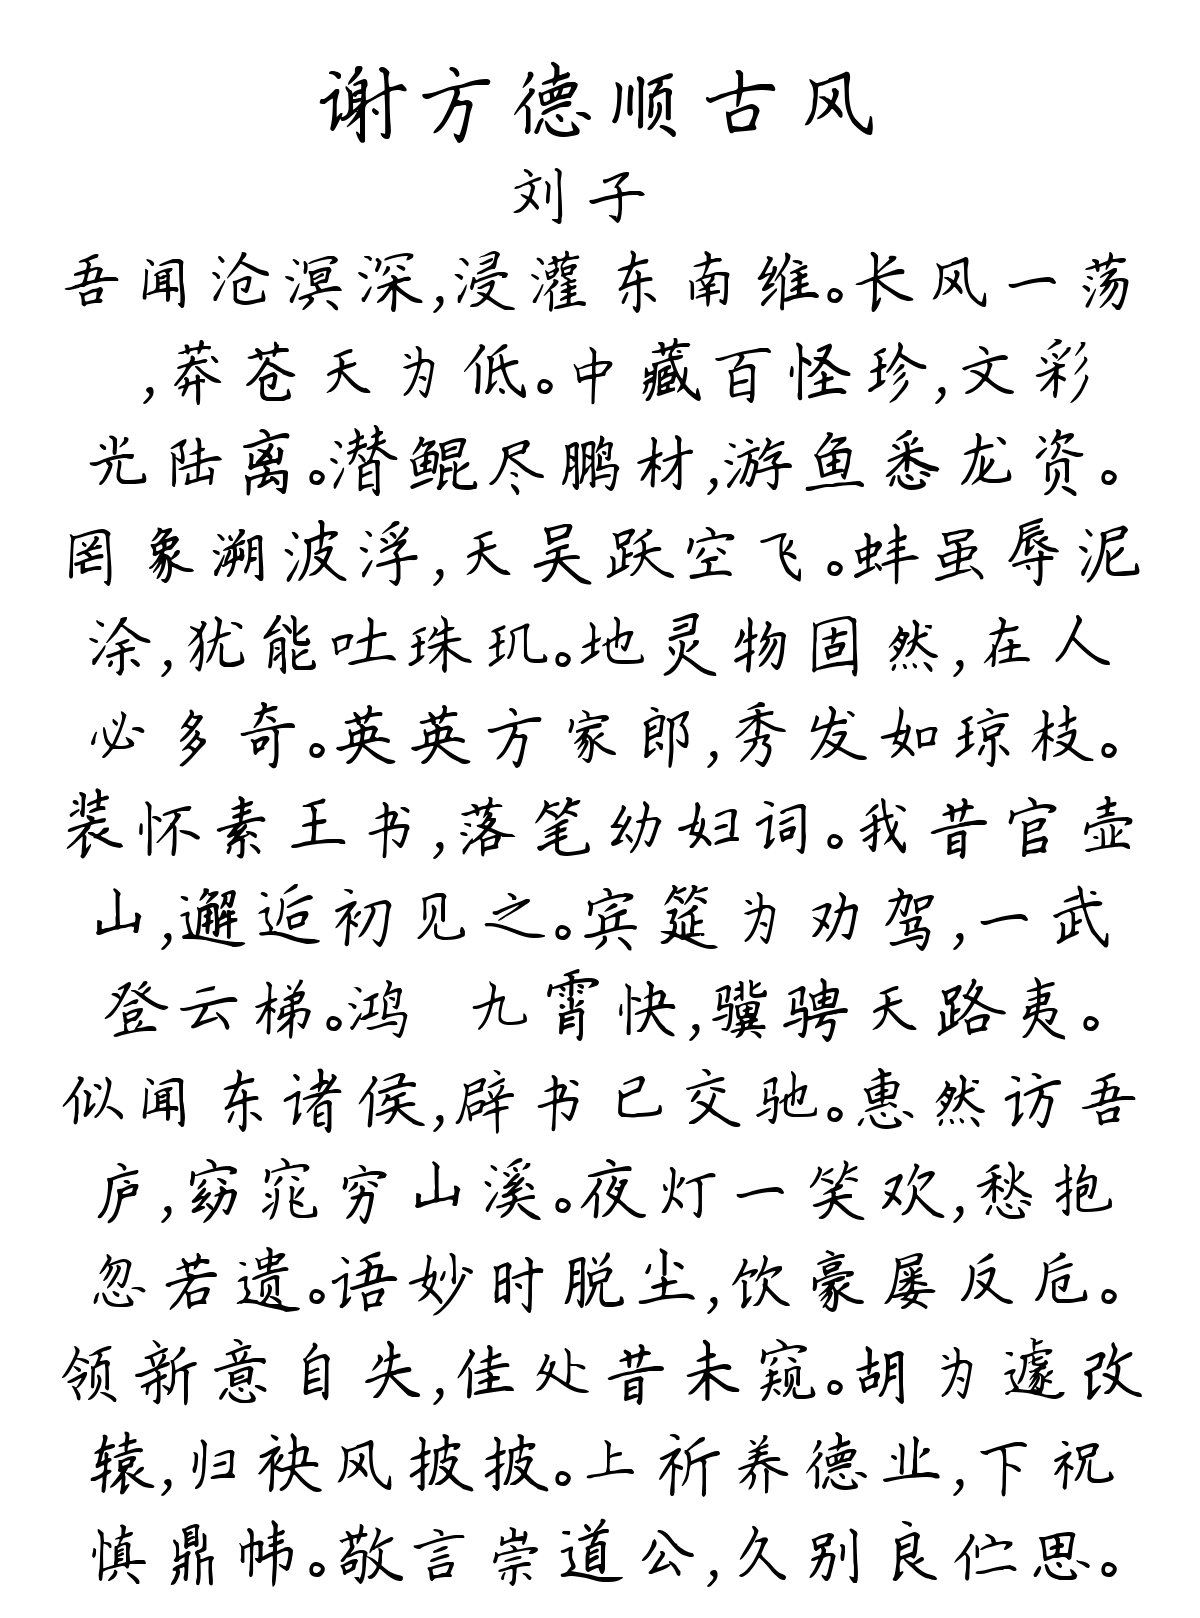 谢方德顺古风
刘子
吾闻沧溟深,浸灌东南维。长风一荡
,莽苍天为低。中藏百怪珍,文彩
光陆离。潜鲲尽鹏材,游鱼悉龙资。
罔象溯波浮,天吴跃空飞。蚌虽辱泥
涂,犹能吐珠玑。地灵物固然,在人
必多奇。英英方家郎,秀发如琼枝。
装怀素王书,落笔幼妇词。我昔官壶
山,邂逅初见之。宾筵为劝驾,一武
登云梯。鸿 九霄快,骥骋天路夷。
似闻东诸侯,辟书已交驰。惠然访吾
庐,窈窕穷山溪。夜灯一笑欢,愁抱
忽若遗。语妙时脱尘,饮豪屡反卮。
领新意自失,佳处昔未窥。胡为遽改
辕,归袂风披披。上祈养德业,下祝
慎鼎帏。敬言崇道公,久别良伫思。